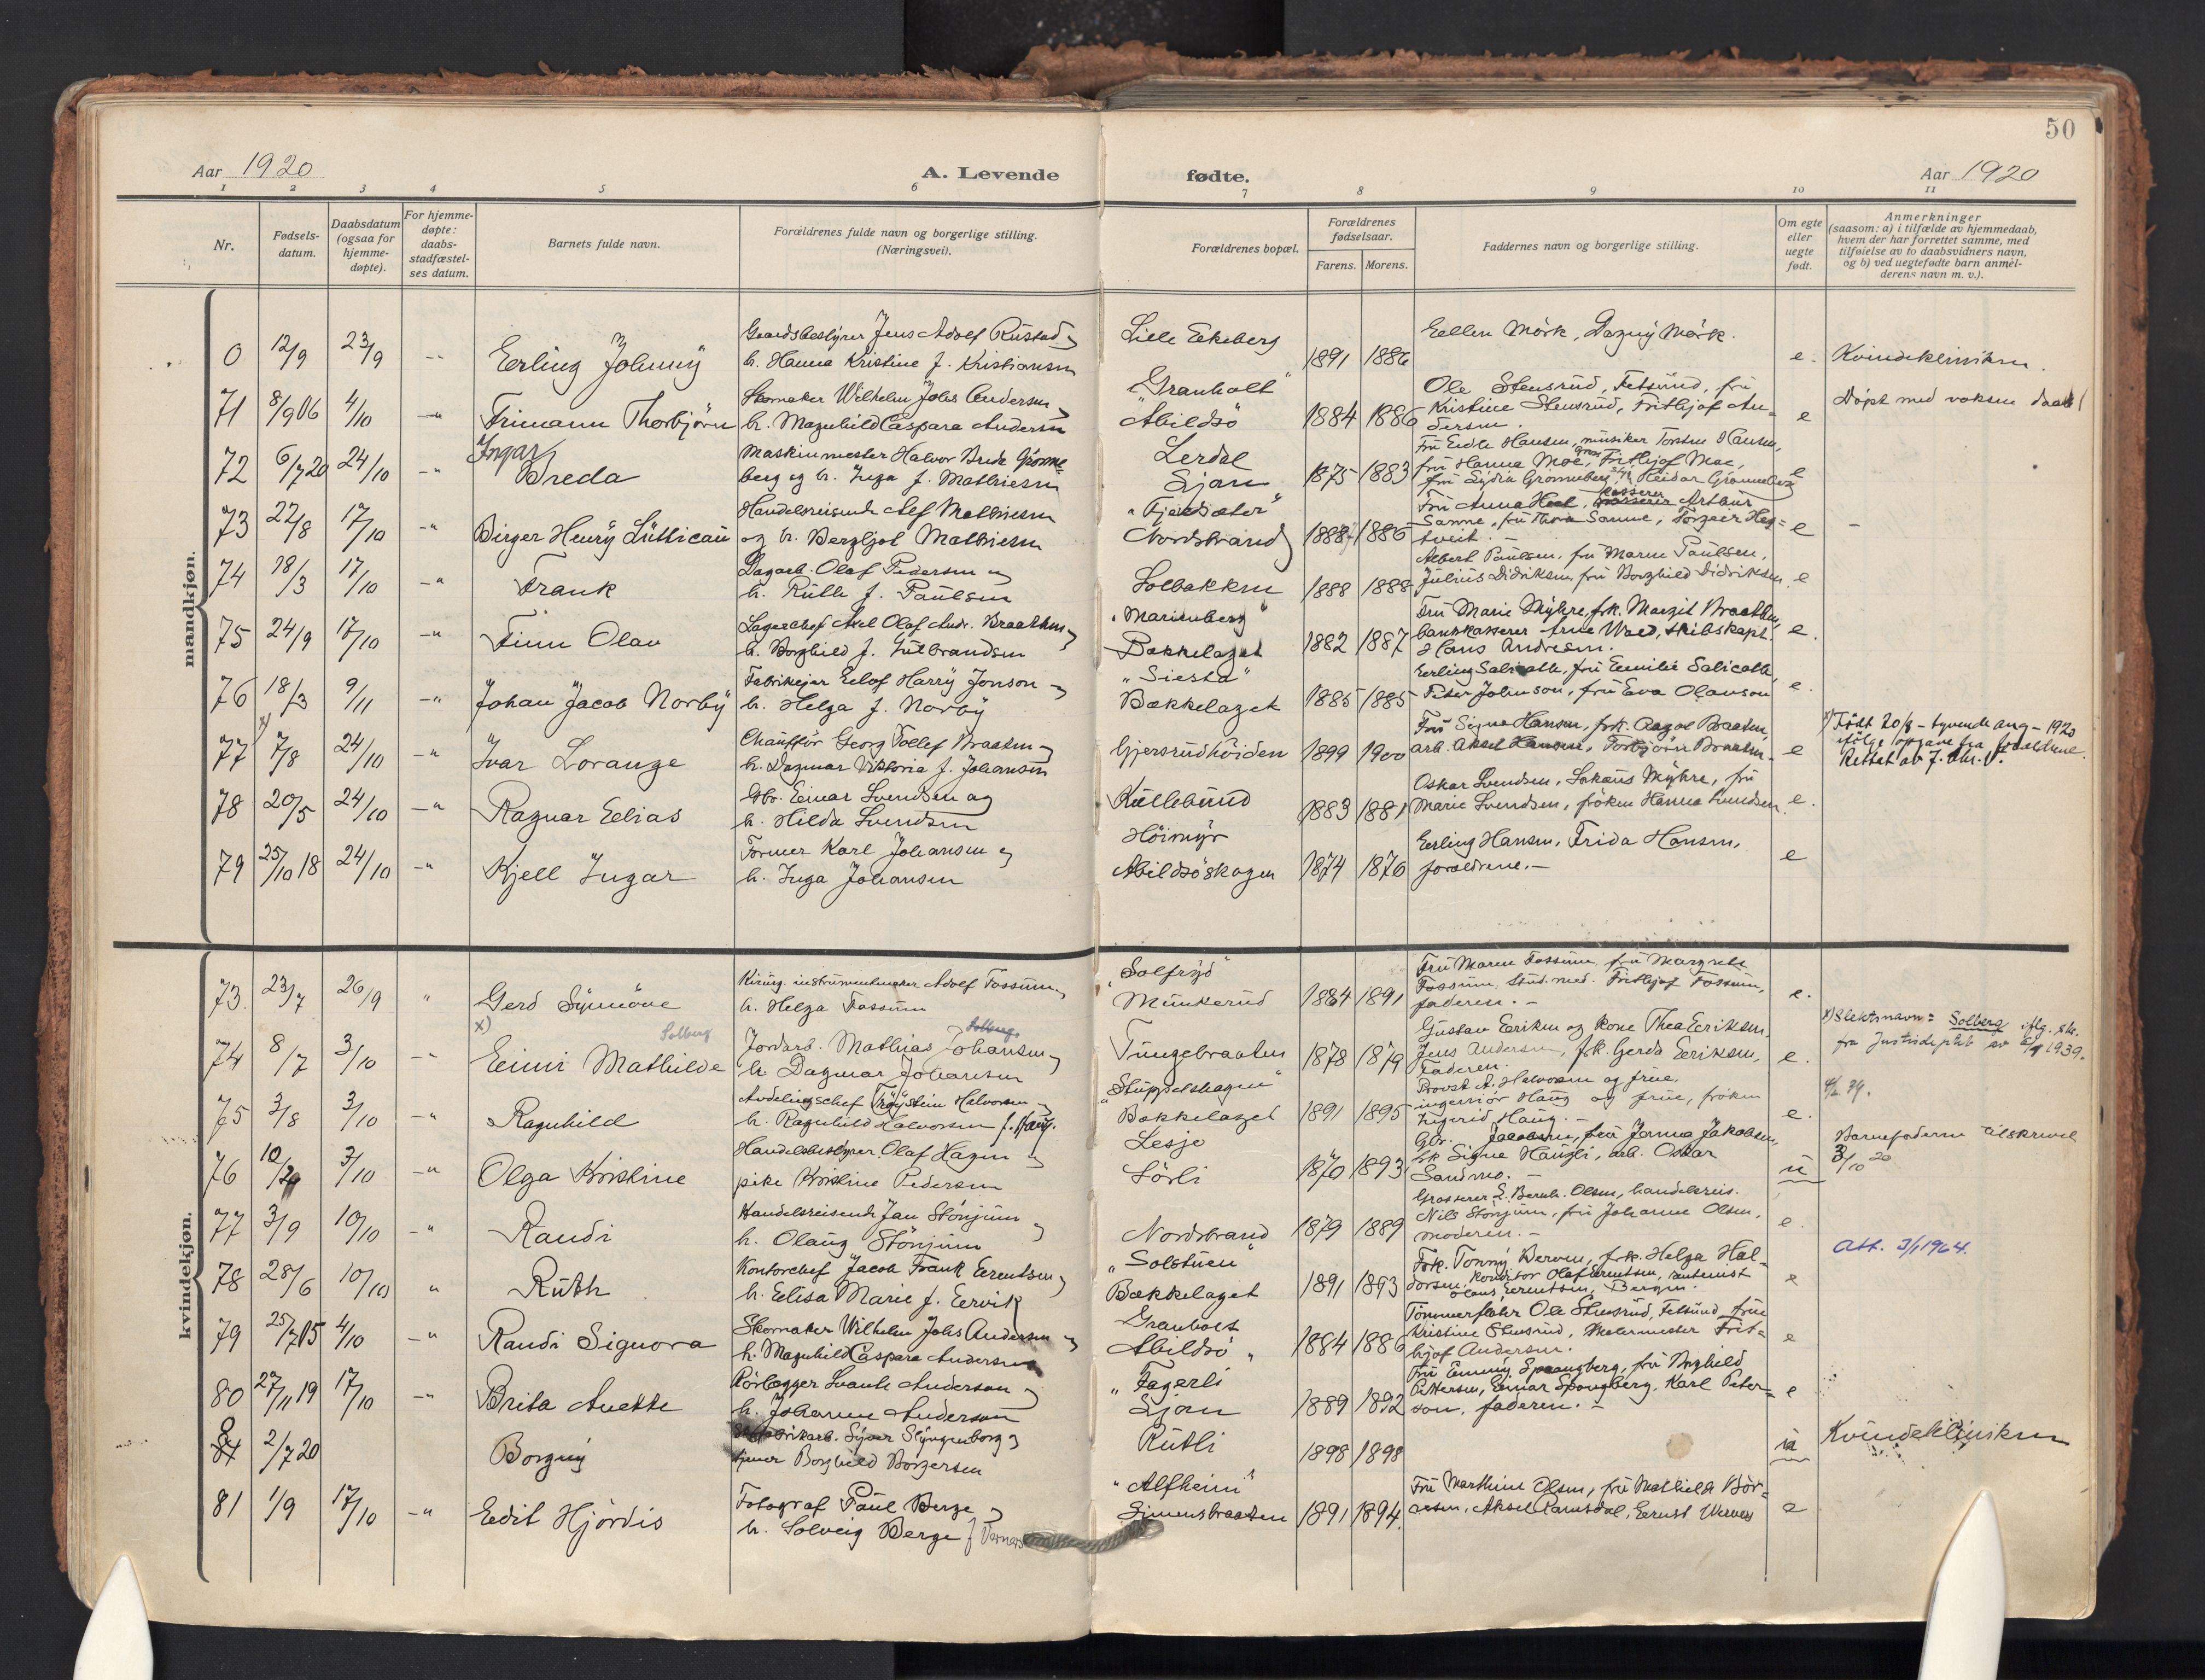 50
Aar 1920 A. Levende fødte. Aar 1920
1 2 3 4 5 6 7 8 9 10 11
Nr. Fødsels-datum. Daabsdatum (ogsaa for hjemme-døpte). For hjemme-døpte: daabs-stadfæstel-ses datum. Barnets fulde navn. Forældrenes fulde navn og borgerlige stilling. (Næringsvei). Forældrenes bopæl. Forældrenes fødselsaar. Farens. Morens. Faddernes navn og borgerlige stilling. Om egte eller uegte født. Anmerkninger (saasom: a) i tilfælde av hjemmedaab, hvem der har forrettet samme, med tilføielse av to daabsvidners navn, og b) ved uegtefødte barn anmel-derens navn m. v.).
mandkjøn.
0 12/9 23/9 Erling Johnny Gaardsbestyrer Jens Adolf Rustad og h. Hanna Kristine f. Kristiansen Lille Ekeberg 1891 1886 Ellen Mörk, Dagny Mörk. e. Kvindeklinikken.
71 8/9 06 4/10 -"- Finmann Thorbjörn Skomaker Wilhelm Johs Andersen og h. Magnhild Caspara Andersen "Granholt" Abildsö 1884 1886 Ole Stensrud, Fetsund, fru Kristine Stensrud, Frithjof Andersen. e Döpt med voksen daab!
72 6/7 20 24/10 -"- Ingar Breda Maskinmester Halvor Brede Grønneberg og h. Inga f. Mathiesen Lerdal Ljan 1875 1883 Hansen, musiker Torsten Hansen, fru Hanna Moe, Frithjof Moe, fru Lydia Grønneberg, Reidar Grønneberg e
73 22/8 17/10 -"- Birger Henry Lütticau Handelsreisende Alf Mathiesen og h. Bergljot Mathiesen "Fjeldsæter" Nordstrand 1888 1886 Fru Anna Heel, kasserer Arthur Sanne, fru Thora Sanne, Torgeir Hegtveit. e
74 18/3 17/10 -"- Frank Dagarb. Olaf Pedersen og h. Ruth f. Paulsen Solbakken 1888 1888 Albert Paulsen, fru Maren Paulsen, Julius Didriksen, fru Borghild Didriksen. e
75 24/9 17/10 -"- Finn Olav Lagerchef Axel Olaf Andr. Braathen og h. Borghild f. Gulbrandsen "Marienberg" Bækkelaget 1882 1887 Fru Marie Myhre, frk. Margit Braathen, bankkasserer Hans Andresen. e.
76 18/3 9/11 -"- Johan Jacob Norby Fabrikeier Elof Harry Jonson og h. Helga f. Norby "Siesta" Bækkelaget 1885 1885 Erling Salicath, fru Emilie Salicath, Peter Johnson, fru Eva Olanson e.
77 x) 7/8 24/10 -"- Ivar Lorange Chauffør Georg Tollef Braaten og h. Dagmar Viktoria f. Johansen Gjersrudhöiden 1899 1900 Fru Signe Hansen, frk. Aagot Braaten, arb. Aksel Hansen, Torbjörn Braaten. e x) Født 20/8 - tyvende aug - 1920 ifölge opgave fra forældrene. Rettet av J. Chr. V.
78 20/5 24/10 -"- Ragnar Elias Gbr. Einar Svendsen og h. Hilda Svendsen Kullebund 1883 1881 Oskar Svendsen, Myhre, fru Marie Svendsen, fröken Hanna Svendsen e.
79 25/10 18 24/10 -"- Kjell Ingar Former Karl Johansen og h. Inga Johansen Höimyr Abildsöskogen 1874 1876 Erling Hansen, Frida Hansen, forældrene.- e
kvindekjøn.
73 23/7 26/9 " Gerd Synnöve Kirurg. instrumentmaker Adolf Fossum og h. Helga Fossum "Solfryd" Munkerud 1884 1891 Fru Maren Fossum, fru Margrethe Fossum, stud. med. Frithjof Fossum, faderen.- e.
74 8/7 3/10 -"- x) Einni Mathilde Solberg Jordarb. Mathias Johansen Solberg og h. Dagmar Johansen Tungebraaten 1878 1879 Gustav Eriksen og kone Thea Eriksen, Jens Andersen, frk. Gerda Eriksen, Faderen. e. x) Slektsnavn = Solberg iflg. skr. fra Justisdeptet av 1939. 39.
75 3/8 3/10 -"- Ragnhild Avdelingschef Tröystein Halvorsen og h. Ragnhild Halvorsen f. Haug. "Stuppelskogen" Bækkelaget 1891 1895 Provst A. Halvorsen og frue, ingeniör Haug og frue, fröken Ingerid Haug.- e.
76 10/ 3/10 -"- Olga Kristine Handelsbestyrer Olaf Hagen og pike Kristine Pedersen Lesje Sörli 1870 1893 Gbr. Jacobsen, fru Jenma Jakobsen, frk Signe Haugli, arb. Oskar Sandmo.- u Barnefaderen tilskrevet 3/10 20
77 3/9 10/10 -"- Randi Handelsreisende Jan Stönjum og h. Olaug Stönjum Nordstrand 1879 1889 Grosserer S. Bernh. Olsen, handelsreis. Nils Stönjum, fru Johanne Olsen, moderen.- e.
78 28/6 10/10 " Ruth Kontorchef Jacob Frank Erentsen og h. Elisa Marie f. Ervik "Solstuen" Bækkelaget 1891 1893 Frk. Tonny Berven, frk. Helga Haldorsen, konditor Olaf Erentsen, rentenist Olaus Erentsen, Bergen. e Att. 3/1 1964.
79 25/7 05 4/10 -"- Randi Signora Skomaker Wilhelm Johs Andersen og h. Magnhild Caspara Andersen Granholt Abildsö " 1884 1886 Tömmerfløter Ole Stensrud, Fetsund, frue Kristine Stensrud, Malermester Frithjof Andersen. e
80 27/11 19 17/10 -"- Brita Anette Rörlægger Svante Anderson og h. Johanne Anderson "Fagerli Ljan 1889 1892 Fru Emmy Spangberg, fru Borghild Pettersen, Einar Spangberg, Karl Peterson, faderen.- e
0 2/7 20 Borgny Fabrikarb. Syver Slyngenborg og tjener Borghild Borgersen Rutli 1898 1898 u Kvindeklinikken
81 1/9 17/10 -"- Edit Hjördis Fotograf Paul Berge og h. Solveig Berge f "Alfheim" Simensbraaten 1891 1894. Fru Marthine Olsen, fru Mathilde Börresen, Aksel Ramsdal, Ernst e